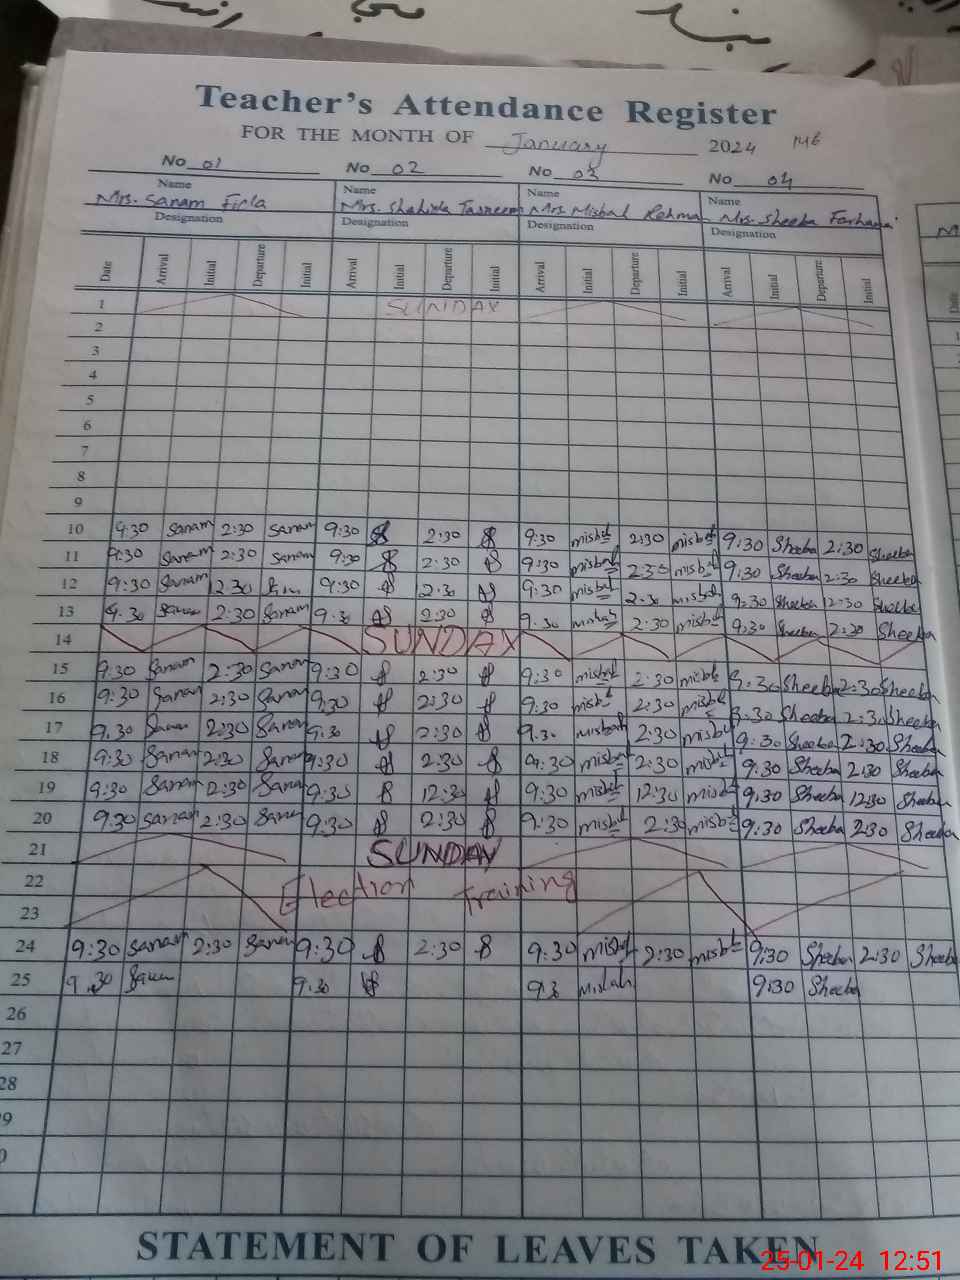 Teacher's Attendance Register
FOR THE MONTH OF January 2024
No 01 No 02 No 03 No 04
Name Name Name Name
Mrs. Sanam Mrs. Shahida Tasneem Mrs Misbah Rehman Mrs. Sheeba Farhana
Designation Designation Designation Designation
Date Arrival Initial Departure Initial Arrival Initial Departure Initial Arrival Initial Departure Initial Arrival Initial Departure Initial
1 SUNDAY
2
3
4
5
6
7
8
9
10 9:30 Sanam 2:30 Sanam 9:30 2:30 9:30 misbah 2:30 misbah 9:30 Sheeba 2:30 Sheeba
11 9:30 Sanam 2:30 Sanam 9:30 2:30 9:30 misbah 2:30 misbah 9:30 Sheeba 2:30 Sheeba
12 9:30 Sanam 12.30 9:30 2:30 9:30 misbah 2:30 misbah 9:30 Sheeba 12:30 Sheeba
13 9.30 Sanam 2:30 Sanam 9.30 2:30 9.30 misbah 2:30 misbah 9:30 Sheeba 2:30 Sheeba
14 SUNDAY
15 9:30 Sanam 2:30 Sanam 9:30 2:30 9:30 misbah 2:30 misbah 9.30 Sheeba 2:30 Sheeba
16 9:30 Sanam 2:30 Sanam 9:30 2:30 9:30 misbah 2:30 misbah 9.30 Sheeba 2:30 Sheeba
17 9.30 Sanam 2:30 Sanam 9:30 2:30 9.30 misbah 2:30 misbah 9:30 Sheeba 2:30 Sheeba
18 9:30 Sanam 2:30 Sanam 9:30 2:30 9:30 misbah 2:30 misbah 9:30 Sheeba 2:30 Sheeba
19 9:30 Sanam 2:30 Sanam 9:30 12:30 9:30 misbah 12:30 misbah 9:30 Sheeba 12:30 Sheeba
20 9:30 Sanam 2:30 Sanam 9:30 2:30 9:30 misbah 2:30 misbah 9:30 Sheeba 2:30 Sheeba
21 SUNDAY
22 Election Training
23
24 9:30 Sanam 2:30 Sanam 9:30 2:30 9:30 misbah 2:30 misbah 9:30 Sheeba 2:30 Sheeba
25 9.30 Sanam 9:30 9:3 misbah 9:30 Sheeba
26
27
28
9
0
STATEMENT OF LEAVES TAKEN
25-01-24 12:51